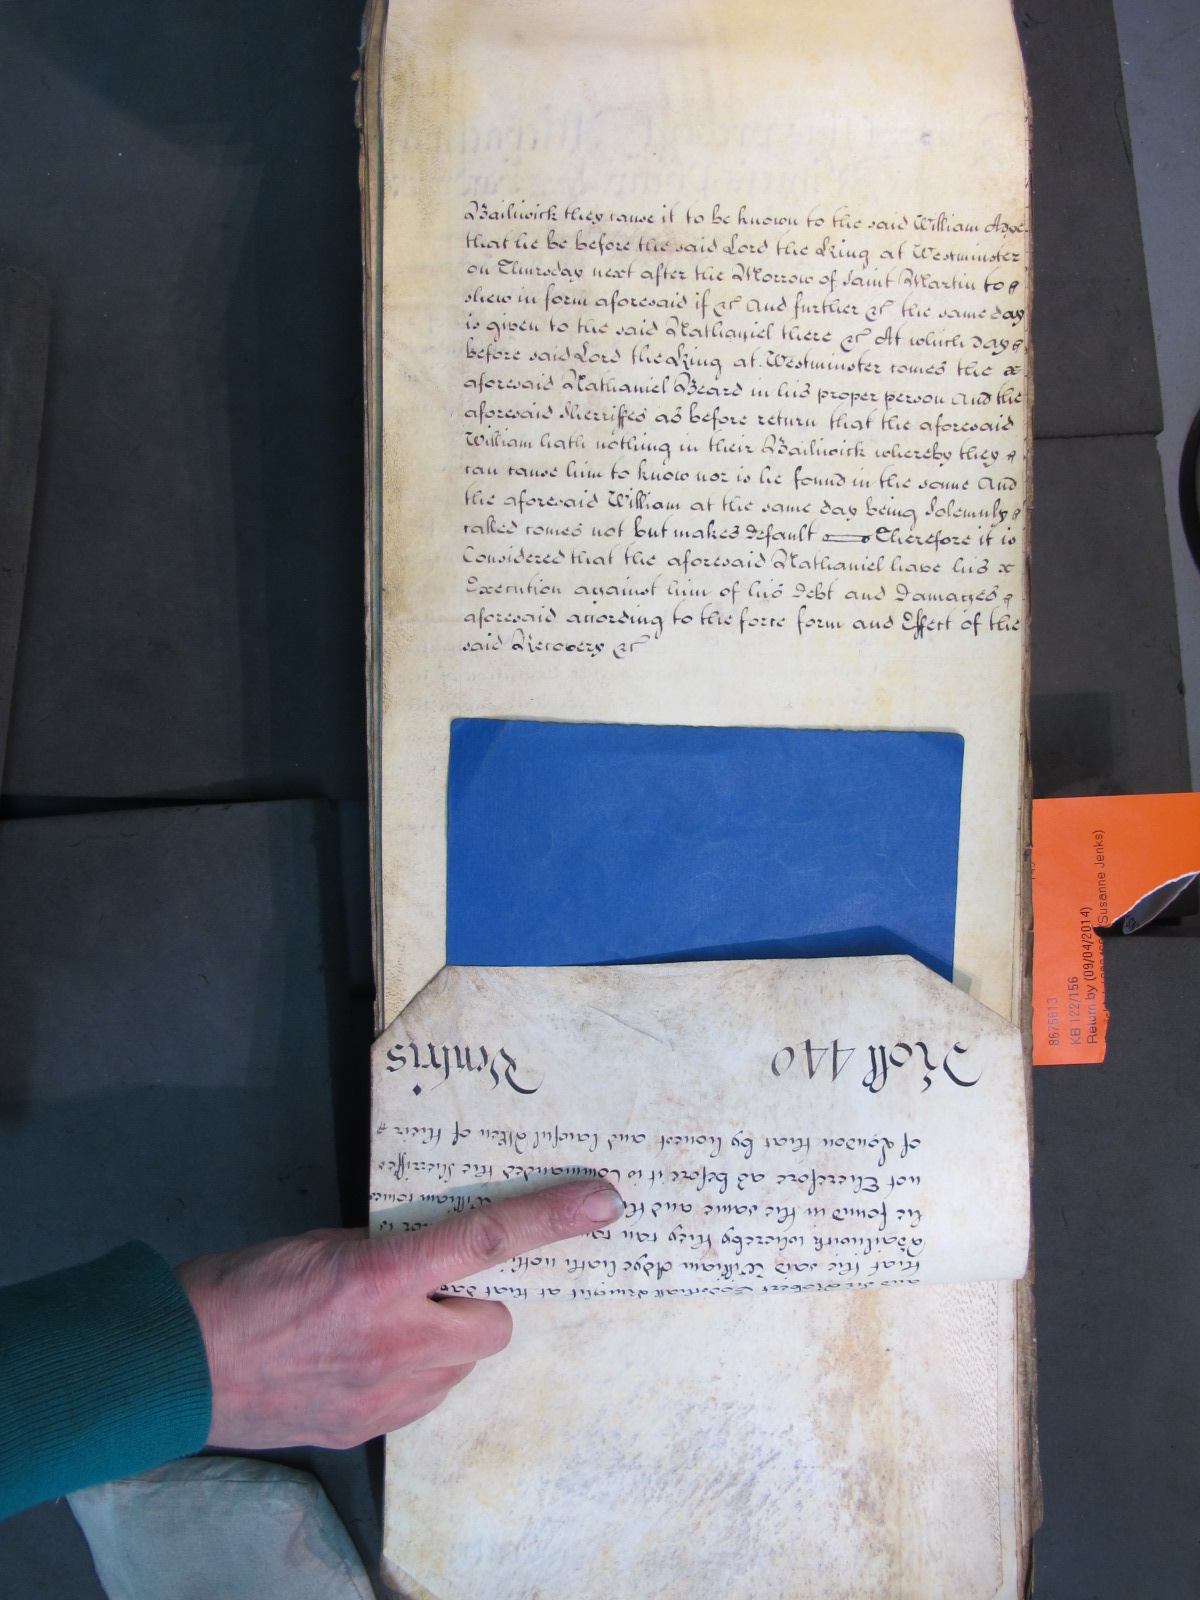 Bailiwick they cause it to be known to the said William Adye
that he be before the said Lord the King at Westminster
on Thursday next after the Morrow of Saint Martin to
shew in form aforesaid if &c And further &c the same day
is given to the said Nathaniel there &c At which day
before said Lord the King at Westminster comes the
aforesaid Nathaniel Beard in his proper person And the
aforesaid Sherriffes as before return that the aforesaid
William hath nothing in their Bailiwick whereby they
can cause him to know nor is he found in the same And
the aforesaid William at the same day being Solemnly
called comes not but makes Default Therefore it is
Considered that the aforesaid Nathaniel have his
Execution against him of his Debt and Damages
aforesaid according to the force form and Effect of the
said Recovery &c
8675613
KB 122/156
Return by (09/04/2014)
(Susanne Jenks)
and Sir Robert at that day
that the said William Adye hath
Bailiwick whereby they can
he found in the same and William comes
not Therefore as before it is Commanded the Sherriffes
of London that by honest and lawful Men of their
Roll 440 Ventris